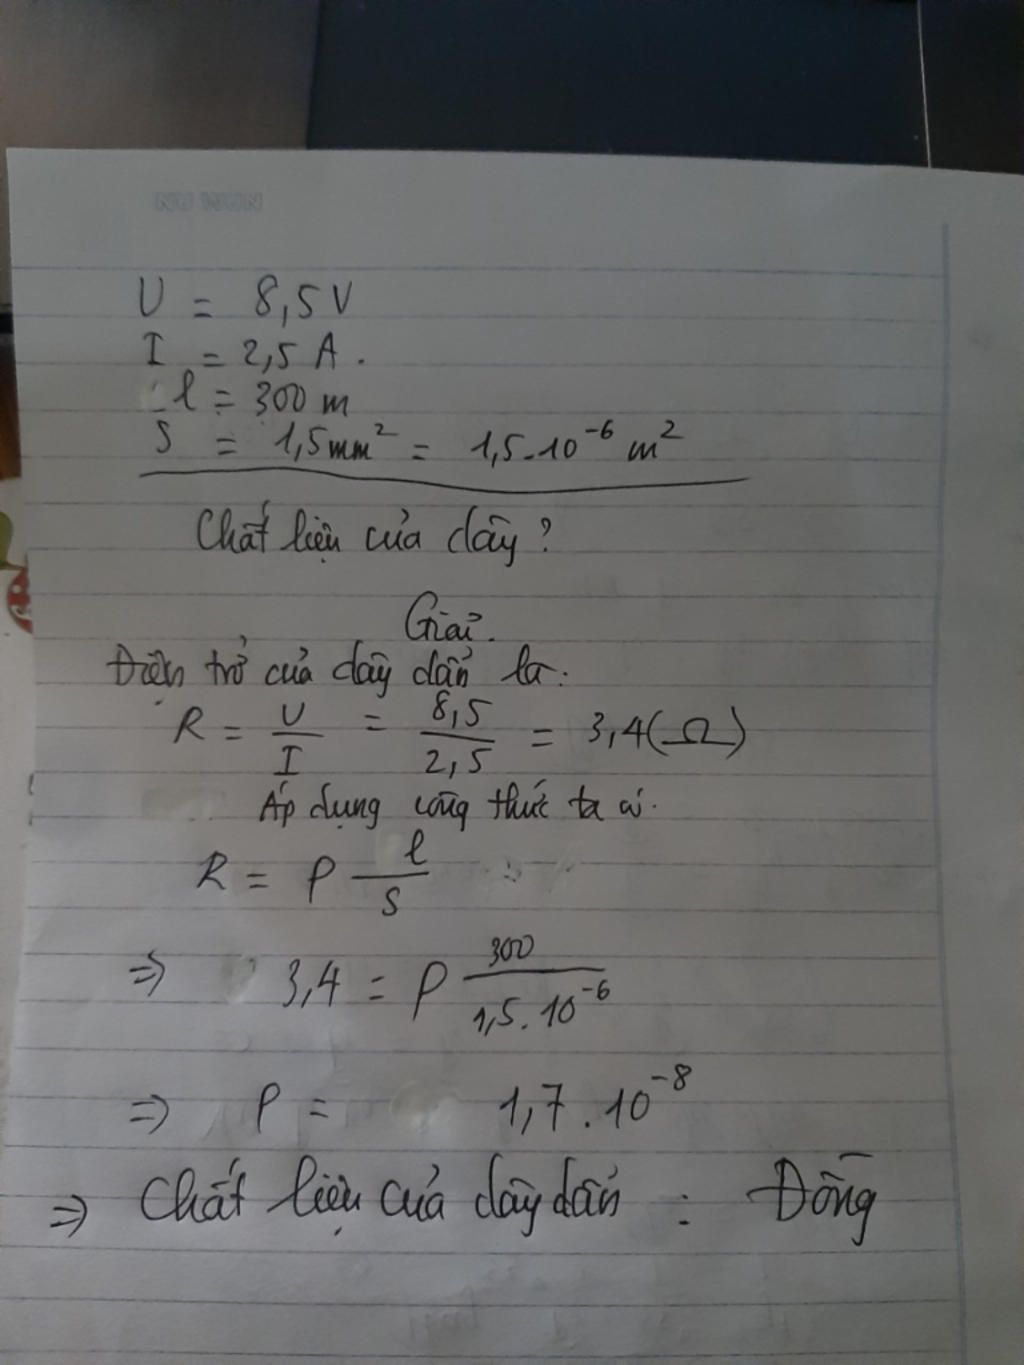 NU WUN
U = 8,5 V
I = 2,5 A.
l = 300 m
S = 1,5mm² = 1,5.10⁻⁶ m²
Chất liệu của dây?
Giải.
Điện trở của dây dẫn là:
R = U/I = 8,5/2,5 = 3,4(Ω)
Áp dụng công thức ta có.
R = ρ l/S
=> 3,4 = ρ 300/1,5.10⁻⁶
=> ρ = 1,7.10⁻⁸
=> Chất liệu của dây dẫn : Đồng